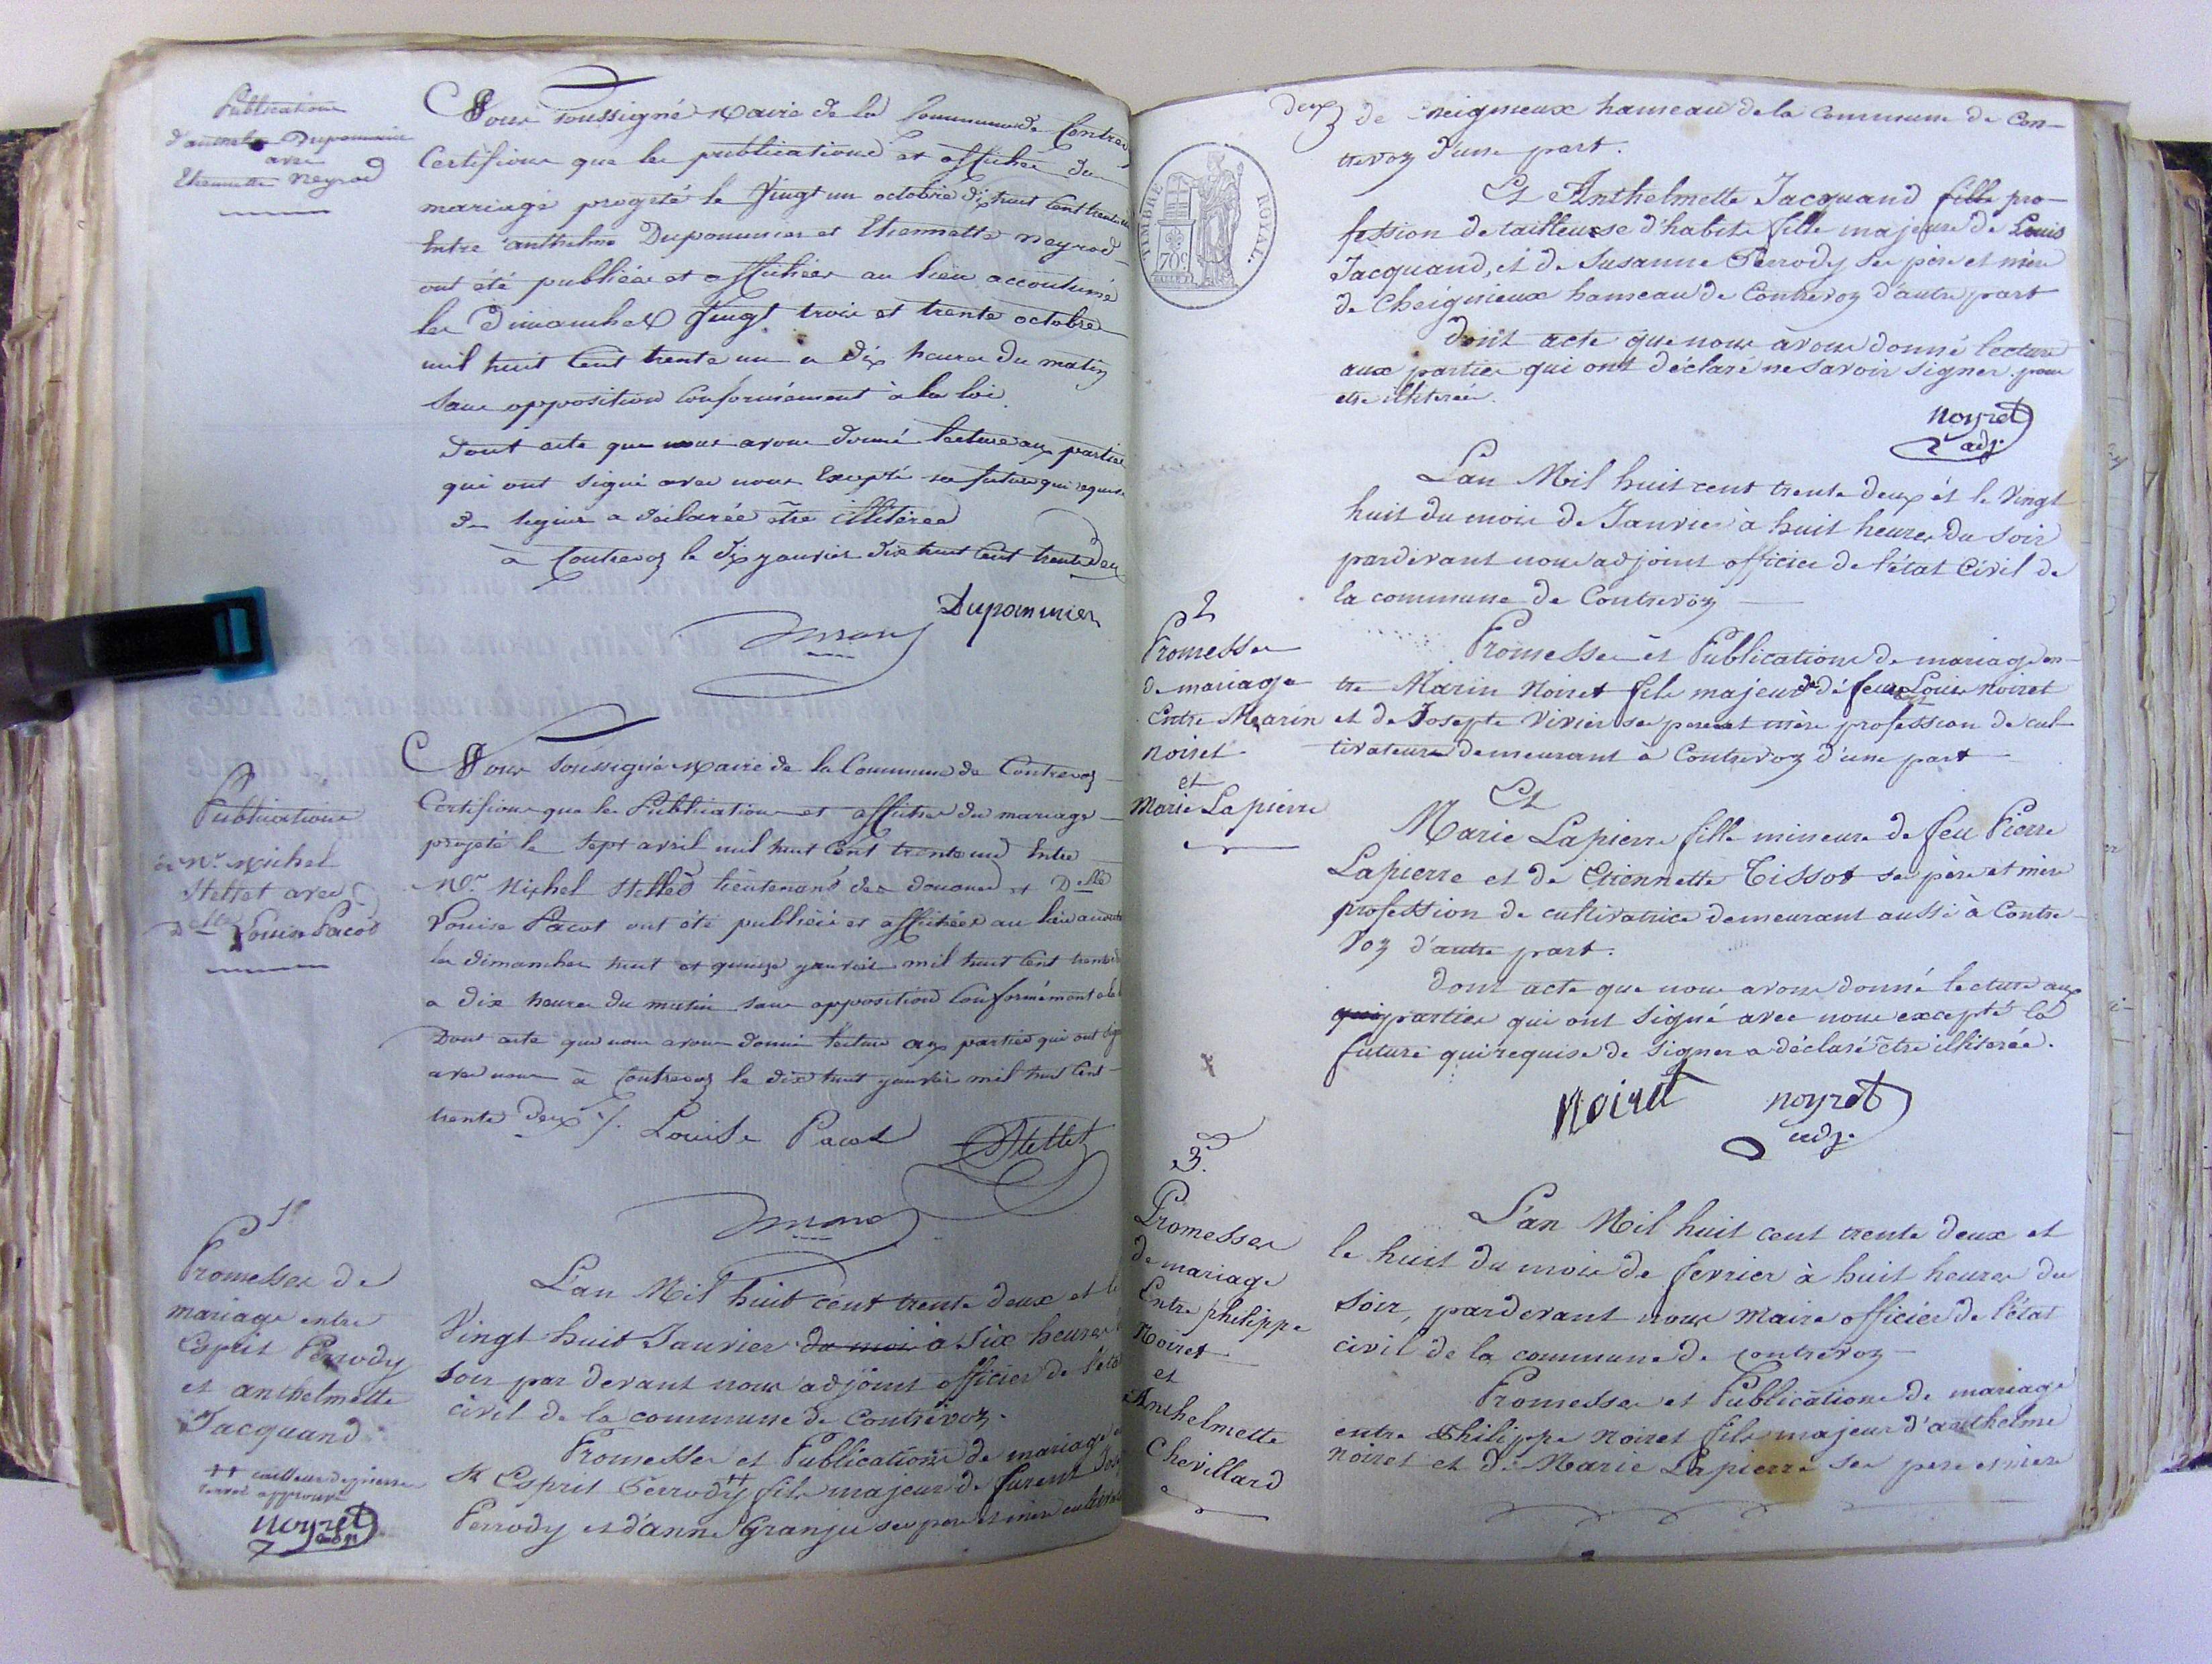 Publications
d'anthelme Dupommier
avec
Etiennette Neyrod
Nous soussigné Maire de la Commune de Contrevoz
Certifions que les publications et affiches du
mariage projeté le Vingt un octobre dix huit Cent trente un
Entre anthelme Dupommier et Etiennette neyrod
ont été publiées et affichées au lieu accoutumé
les Dimanches Vingt trois et trente octobre
mil huit Cent trente un a dix heures du matin
sans opposition Conformément à la loi
dont acte que nous avons donné lecture aux parties
qui ont signé avec nous Excepté la future qui requise
de signer a déclarée être illitérée
à Contrevoz le dix janvier dix huit Cent trente deux
Dupommier
Publications
de Mr. Michel
Stettet avec
Delle Louise Pacot
Nous soussigné Maire de la Commune de Contrevoz
Certifions que les Publications et affiches du mariage
projeté le sept avril mil huit Cent trente un Entre
Mr. Michel Stettet lieutenant des douanes et Delle
Louise Pacot ont été publiées et affichées au lieu
les dimanches huit et quinze janvier mil huit Cent trente
a dix heures du matin sans opposition Conformément a la
Dont acte que nous avons donné lecture aux parties qui ont
avec nous à Contrevoz le dix huit janvier mil huit Cent
trente deux ./. Louise Pacot Stettet
1e
Promesses de
mariage entre
Esprit Perrody
et anthelmette
Jacquand
++ tailleur de pierre
renvoi approuvé
noyret
adj
L'an Mil huit cent trente deux et le
Vingt huit Janvier du moi à six heures
soir par devant nous adjoint officier de l'état
civil de la commune de Contrevoz.
Promesses et Publications de mariage
Sr Esprit Perrody ++ fils majeur de
Perrody et d'anne Granju ses pere et mère
deux
TIMBRE ROYAL.
70c
de Cheignieux hameau de la Commune de Con-
trevoz d'une part.
Et Anthelmette Jacquand fille pro-
fession de tailleuse d'habits fille majeure de Louis
Jacquand, et de Susanne Perrody ses père et mère
de Cheignieux hameau de Contrevoz d'autre part
dont acte que nous avons donné lecture
aux parties qui ont déclaré ne savoir signer pour
etre illiterées.
noyret
adj.
2
Promesses
de mariage
Entre Marin
noiret
et
Marie Lapierre
L'an Mil huit cent trente deux et le Vingt
huit du mois de Janvier à huit heures du soir
pardevant nous adjoint officier de l'état Civil de
la commune de Contrevoz
Promesses et Publications de mariage en-
tre Marin Noiret fils majeur de feu Louis noiret
et de Josepte Vivier ses pere et mère profession de cul-
tivateurs demeurant à Contrevoz d'une part
Et
Marie Lapierre fille mineure de feu Pierre
Lapierre et de Etiennette Tissot ses père et mère
profession de cultivatrice demeurant aussi à Contre-
voz d'autre part.
dont acte que nous avons donné lecture aux
qui parties qui ont signé avec nous excepté la
future qui requise de signer a déclaré être illiterée.
Noiret noyret
adj.
3.
Promesses
de mariage
Entre philippe
Noiret
et
Anthelmette
Chevillard
L'an Mil huit cent trente deux et
le huit du mois de fevrier à huit heures du
soir, pardevant nous Maire officier de l'état
civil de la commune de contrevoz
Promesses et Publications de mariage
entre Philippe Noiret fils majeur d'anthelme
noiret et de Marie Lapierre ses pere et mère